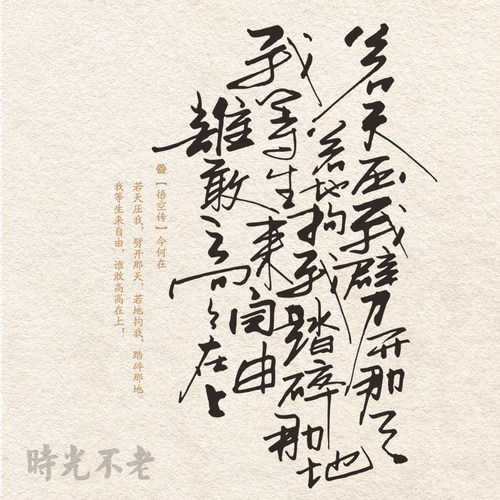 若天压我劈开那天
若地拘我踏碎那地
我等生来自由
誰敢高々在上
【悟空传】今何在
若天压我，劈开那天，若地拘我，踏碎那地
我等生来自由，谁敢高高在上！
時光不老